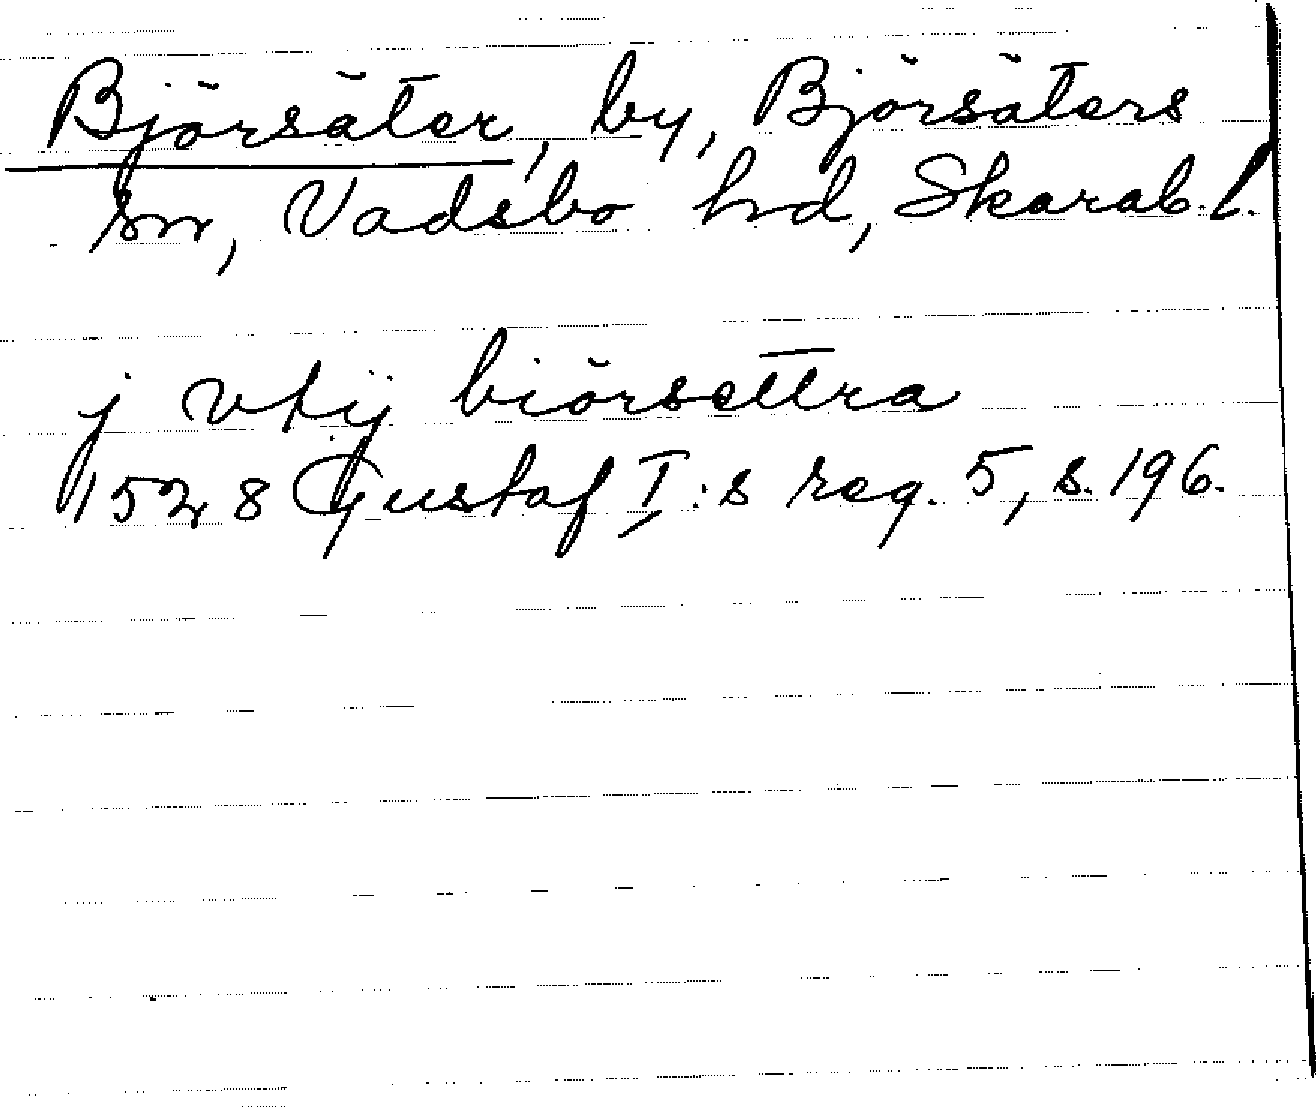 Björsäter, by, Björsäters
sn, Vadsbo hd, Skarab. l.
j vtij biörsettra
1528 Gustaf I:s reg. 5, s. 196.